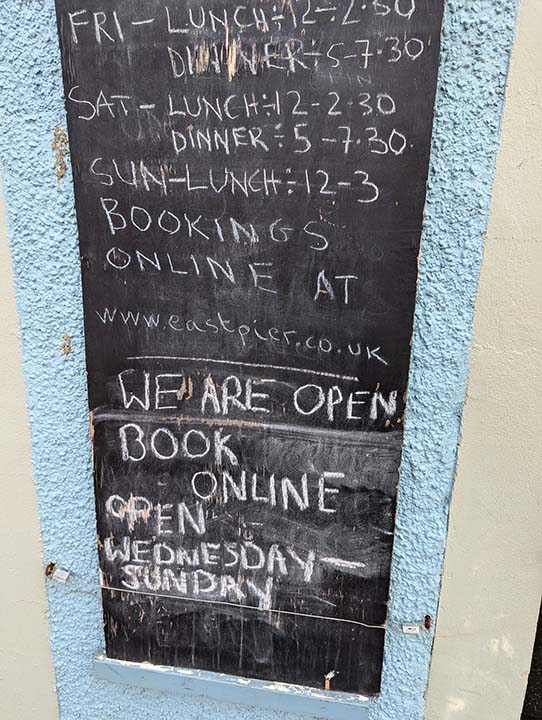 FRI - LUNCH:12-2.30
DINNER÷5-7.30
SAT - LUNCH÷12-2.30
DINNER÷5-7.30.
SUN-LUNCH÷12-3
BOOKINGS
ONLINE AT
www.eastpier.co.uk
WE ARE OPEN
BOOK
ONLINE
OPEN
WEDNESDAY-
SUNDAY